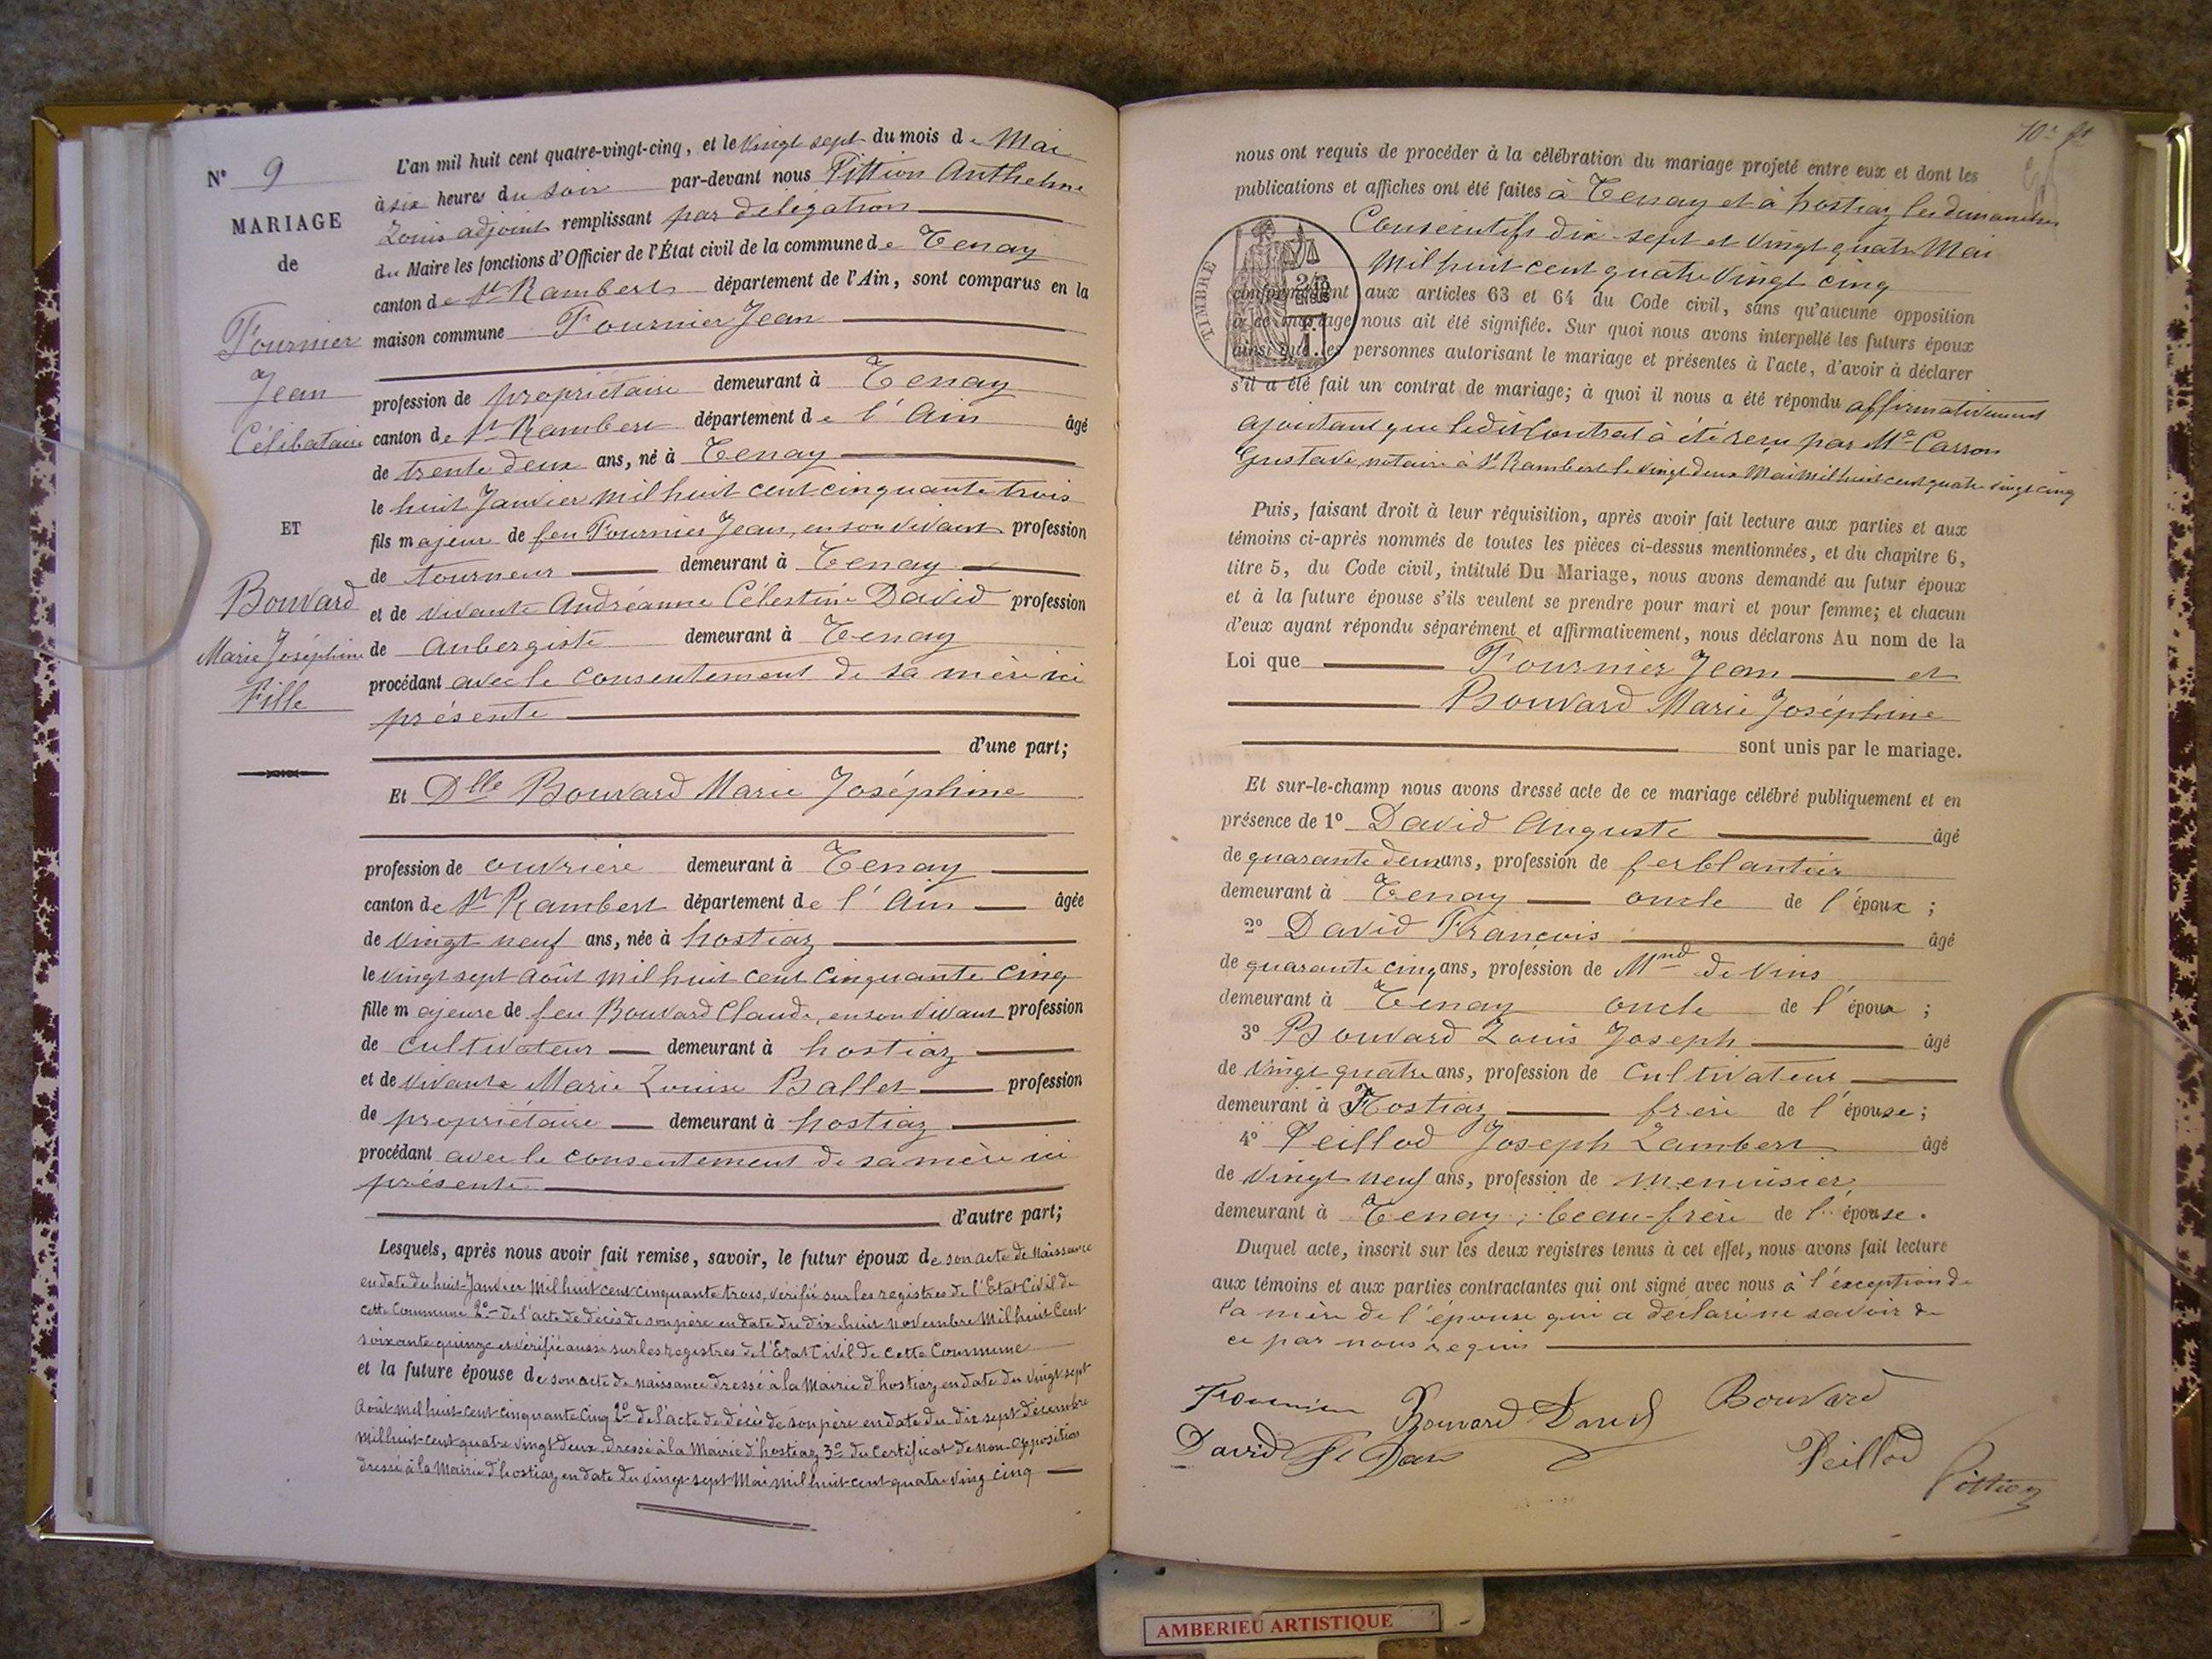 N° 9
MARIAGE
de
Fournier
Jean
Célibataire
ET
Bouvard
Marie Joséphine
Fille
L'an mil huit cent quatre-vingt-cinq, et le vingt sept du mois de Mai
à six heures du soir par-devant nous Pittion Anthelme
Louis adjoint remplissant par délégation
du Maire les fonctions d'Officier de l'État civil de la commune de Tenay
canton de St Rambert département de l'Ain, sont comparus en la
maison commune Fournier Jean
profession de propriétaire demeurant à Tenay
canton de St Rambert département de l'Ain âgé
de trente deux ans, né à Tenay
le huit Janvier mil huit cent cinquante trois
fils majeur de feu Fournier Jean, en son vivant profession
de tourneur demeurant à Tenay
et de vivante Andréanne Célestine David profession
de Aubergiste demeurant à Tenay
procédant avec le consentement de sa mère ici
présente
d'une part;
Et Dlle Bouvard Marie Joséphine
profession de ouvrière demeurant à Tenay
canton de St Rambert département de l'Ain âgée
de vingt neuf ans, née à hostiaz
le vingt sept Août mil huit cent cinquante cinq
fille majeure de feu Bouvard Claude, en son vivant profession
de cultivateur demeurant à hostiaz
et de vivante Marie Louise Ballet profession
de propriétaire demeurant à hostiaz
procédant avec le consentement de sa mère ici
présente
d'autre part;
Lesquels, après nous avoir fait remise, savoir, le futur époux de son acte de Naissance
en date du huit Janvier mil huit cent cinquante trois, vérifié sur les registres de l'Etat Civil de
cette Commune 2° de l'acte de décès de son père en date du dix huit novembre mil huit cent
soixante quinze et vérifié aussi sur les registres de l'Etat Civil de cette Commune
et la future épouse de son acte de naissance dressé à la Mairie d'hostiaz en date du vingt sept
Août mil huit cent cinquante cinq 2° de l'acte de décès de son père en date du dix sept décembre
mil huit cent quatre vingt deux dressé à la Mairie d'hostiaz 3° du Certificat de non opposition
dressé à la Mairie d'hostiaz en date du vingt sept Mai mil huit cent quatre vingt cinq
nous ont requis de procéder à la célébration du mariage projeté entre eux et dont les
publications et affiches ont été faites à Tenay et à hostiaz les dimanches
Consécutifs dix sept et vingt quatre Mai
Mil huit cent quatre vingt cinq
TIMBRE
conformément aux articles 63 et 64 du Code civil, sans qu'aucune opposition
à ce mariage nous ait été signifiée. Sur quoi nous avons interpellé les futurs époux
ainsi que les personnes autorisant le mariage et présentes à l'acte, d'avoir à déclarer
s'il a été fait un contrat de mariage; à quoi il nous a été répondu affirmativement
ajoutant que ledit Contrat à été reçu par Me Carron
Gustave, notaire à St Rambert le vingt deux Mai mil huit cent quatre vingt cinq
Puis, faisant droit à leur réquisition, après avoir fait lecture aux parties et aux
témoins ci-après nommés de toutes les pièces ci-dessus mentionnées, et du chapitre 6,
titre 5, du Code civil, intitulé Du Mariage, nous avons demandé au futur époux
et à la future épouse s'ils veulent se prendre pour mari et pour femme; et chacun
d'eux ayant répondu séparément et affirmativement, nous déclarons Au nom de la
Loi que Fournier Jean et
Bouvard Marie Joséphine
sont unis par le mariage.
Et sur-le-champ nous avons dressé acte de ce mariage célébré publiquement et en
présence de 1° David Auguste âgé
de quarante deux ans, profession de ferblantier
demeurant à Tenay oncle de l'époux ;
2° David François âgé
de quarante cinq ans, profession de Mnd de vins
demeurant à Tenay oncle de l'époux ;
3° Bouvard Louis Joseph âgé
de vingt quatre ans, profession de Cultivateur
demeurant à Hostiaz frère de l'épouse;
4° Peillod Joseph Lambert âgé
de vingt neuf ans, profession de menuisier
demeurant à Tenay, beau-frère de l'épouse.
Duquel acte, inscrit sur les deux registres tenus à cet effet, nous avons fait lecture
aux témoins et aux parties contractantes qui ont signé avec nous à l'exception de
la mère de l'épouse qui a déclaré ne savoir de
ce par nous requis
Fournier Bouvard David Bouvard
David Peillod
Pittion
AMBERIEU ARTISTIQUE